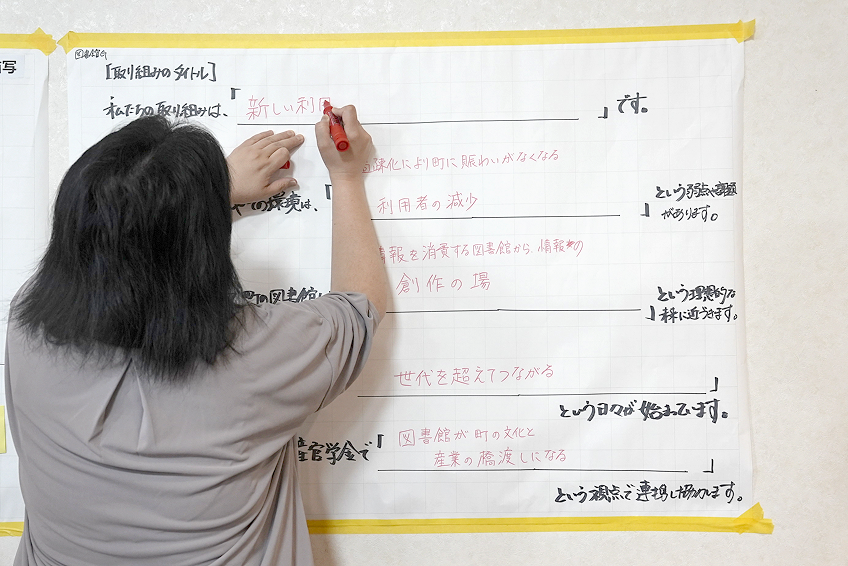 図書館G
写
[取り組みのタイトル]
私たちの取り組みは、「新しい利 」です。
疎化により町に賑わいがなくなる
ての環境は、「利用者の減少」という弱点や課題
があります。
情報を消費する図書館から、情報の
町の図書館 創作の場」という理想的な
未来に近づきます。
世代を超えてつながる」
という日々が始まっています。
産官学金で「図書館が町の文化と
産業の橋渡しになる」
という視点で連携し協力します。